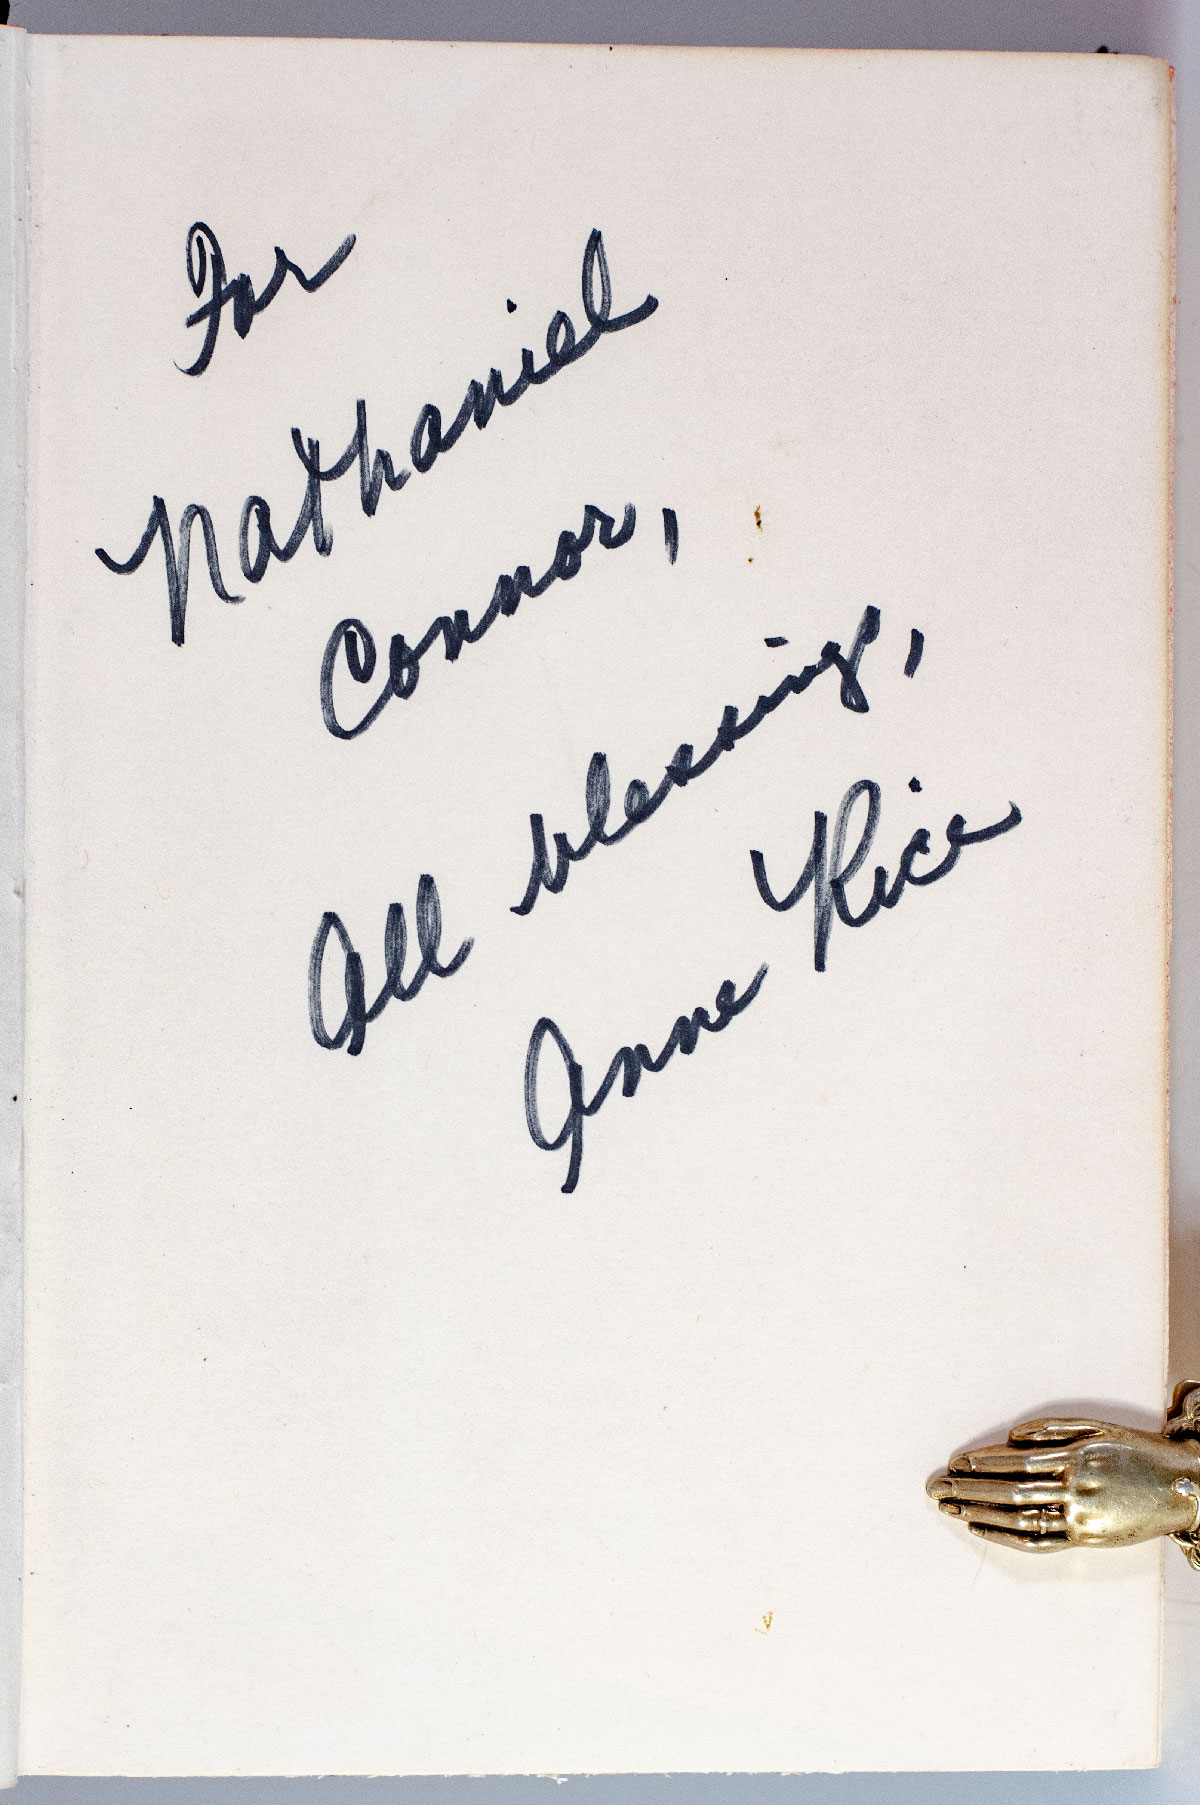 For
Nathaniel
Connor,
All blessings,
Anne Rice